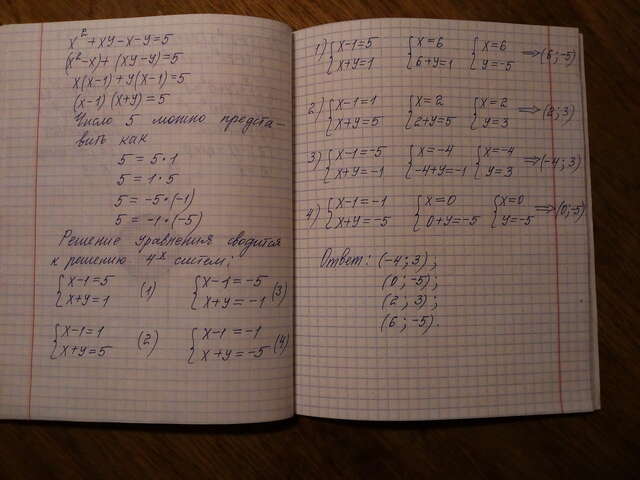 x² + xy - x - y = 5
(x² - x) + (xy - y) = 5
x(x-1) + y(x-1) = 5
(x-1) (x+y) = 5
Число 5 можно предста-
вить как
5 = 5·1
5 = 1·5
5 = -5·(-1)
5 = -1·(-5)
Решение уравнения сводится
к решению 4х систем:
{x-1=5
x+y=1 (1)
{x-1=-5
x+y=-1 (3)
{x-1=1
x+y=5 (2)
{x-1=-1
x+y=-5 (4)
1) {x-1=5 {x=6 {x=6
x+y=1 6+y=1 y=-5 ⟹(6;-5)
2) {x-1=1 {x=2 {x=2
x+y=5 2+y=5 y=3 ⟹(2;3)
3) {x-1=-5 {x=-4 {x=-4
x+y=-1 -4+y=-1 y=3 ⟹(-4;3)
4) {x-1=-1 {x=0 {x=0
x+y=-5 0+y=-5 y=-5 ⟹(0;-5)
Ответ: (-4; 3);
(0; -5);
(2; 3);
(6; -5).